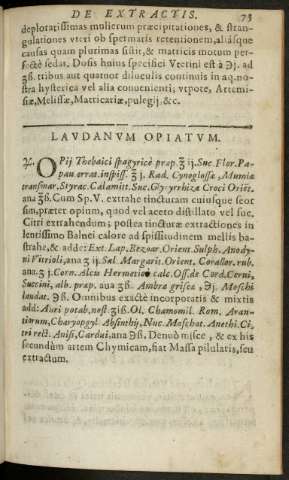 DE EXTRACTIS. 73
deploratissimas mulierum præcipitationes, & stran-
gulationes vteri ob spermatis retentionem, aliasque
causas quam plurimas sistit, & matricis motum per-
fectè sedat. Dosis huius specifici Vterini est à ℈j. ad
ʒß. tribus aut quatuor diluculis continuis in aq. no-
stra hysterica vel alia conuenienti; vtpote, Artemi-
siæ, Melissæ, Matricariæ, pulegij. &c.
LAVDANVM OPIATVM.
℞. OPij Thebaici spagyricè præp. ℥ ij. Suc. Flor. Pa-
pau. errat. inspiss. ℥ j. Rad. Cynoglossæ, Mumiæ
transmar. Styrac. Calamit. Suc. Glycyrhizæ Croci Oriẽt.
ana ℥ß. Cum Sp. V. extrahe tincturam cuiusque seor
sim, præter opium, quod vel aceto distillato vel suc.
Citri extrahendum; postea tincturæ extractiones in
lentissimo Balnei calore ad spissitudinem mellis ba-
strahe, & adde: Ext. Lap. Bezoar. Orient. Sulph. Anody-
ni Vitrioli, ana ʒ ij. Sal. Margarit. Orient. Corallor. rub.
ana ʒ j. Corn. Alcis Hermeticè calc. Oss. de Cord. Cerui,
Succini, alb. præp. ana ʒß. Ambræ griseæ, ℈j. Moschi
laudat. ℈ß. Omnibus exactè incorporatis & mixtis
add: Auri potab. nost ʒiß. Ol. Chamomil. Rom. Aran-
tiorum, Charyopgyl. Absinthij, Nuc. Moschat. Anethi. Ci-
tri rect. Anisi, Cardui. ana ℈ß. Denuò misce, & ex his
secundùm artem Chymicam, fiat Massa pilularis, seu
extractum.